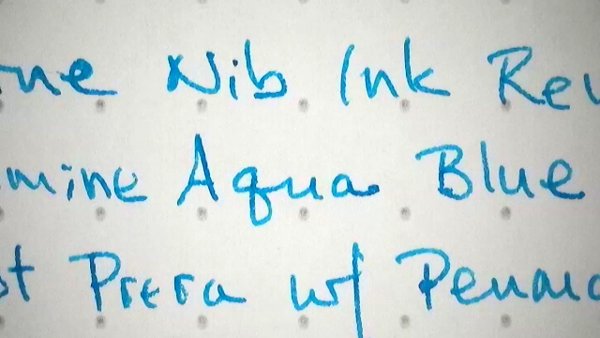 ne Nib Ink Rev
mine Aqua Blue
t Prera w/ Penma